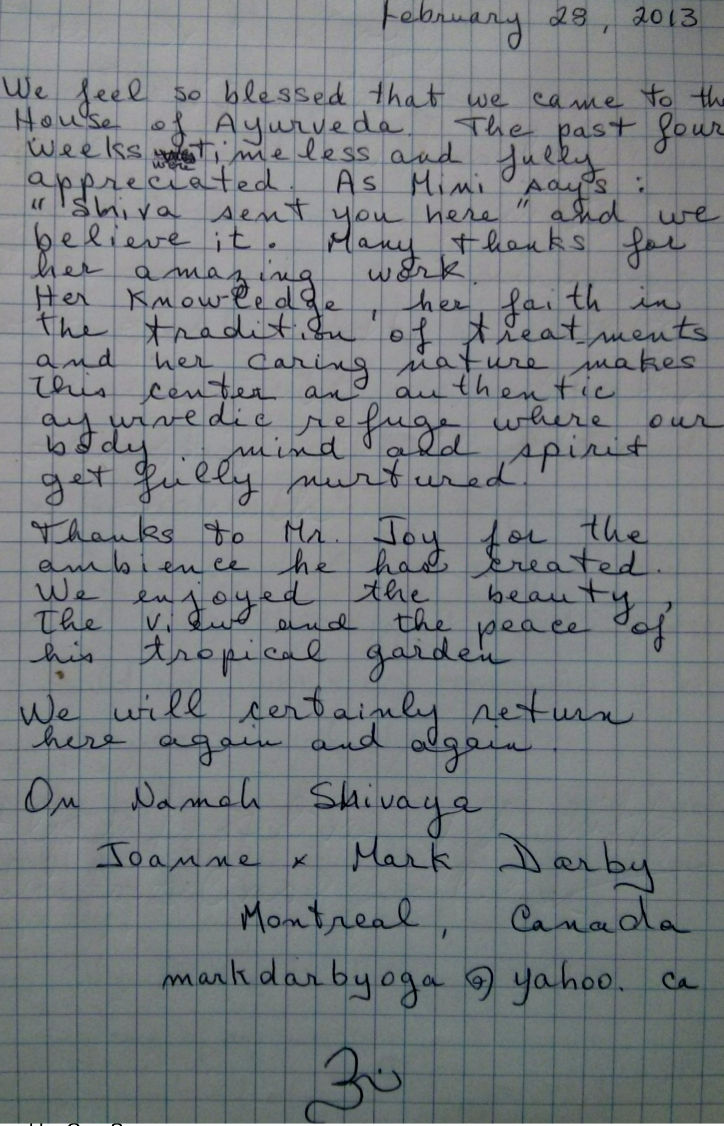 February 28, 2013
We feel so blessed that we came to the
House of Ayurveda. The past four
weeks were timeless and fully
appreciated. As Mimi says :
"Shiva sent you here" and we
believe it. Many thanks for
her amazing work.
Her knowledge, her faith in
the tradition of treatments
and her caring nature makes
this center an authentic
ayurvedic refuge where our
body, mind and spirit
get fully nurtured.
Thanks to Mr. Joy for the
ambience he has created.
We enjoyed the beauty,
the view and the peace of
his tropical garden
We will certainly return
here again and again.
Om Namah Shivaya
Joanne & Mark Darby
Montreal, Canada
markdarbyoga @ yahoo. ca
ॐ